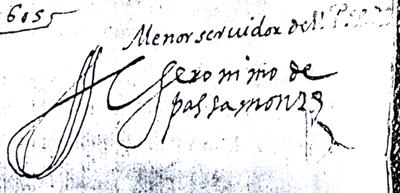 6055
Menor servidor de
Geronimo de
passamonte